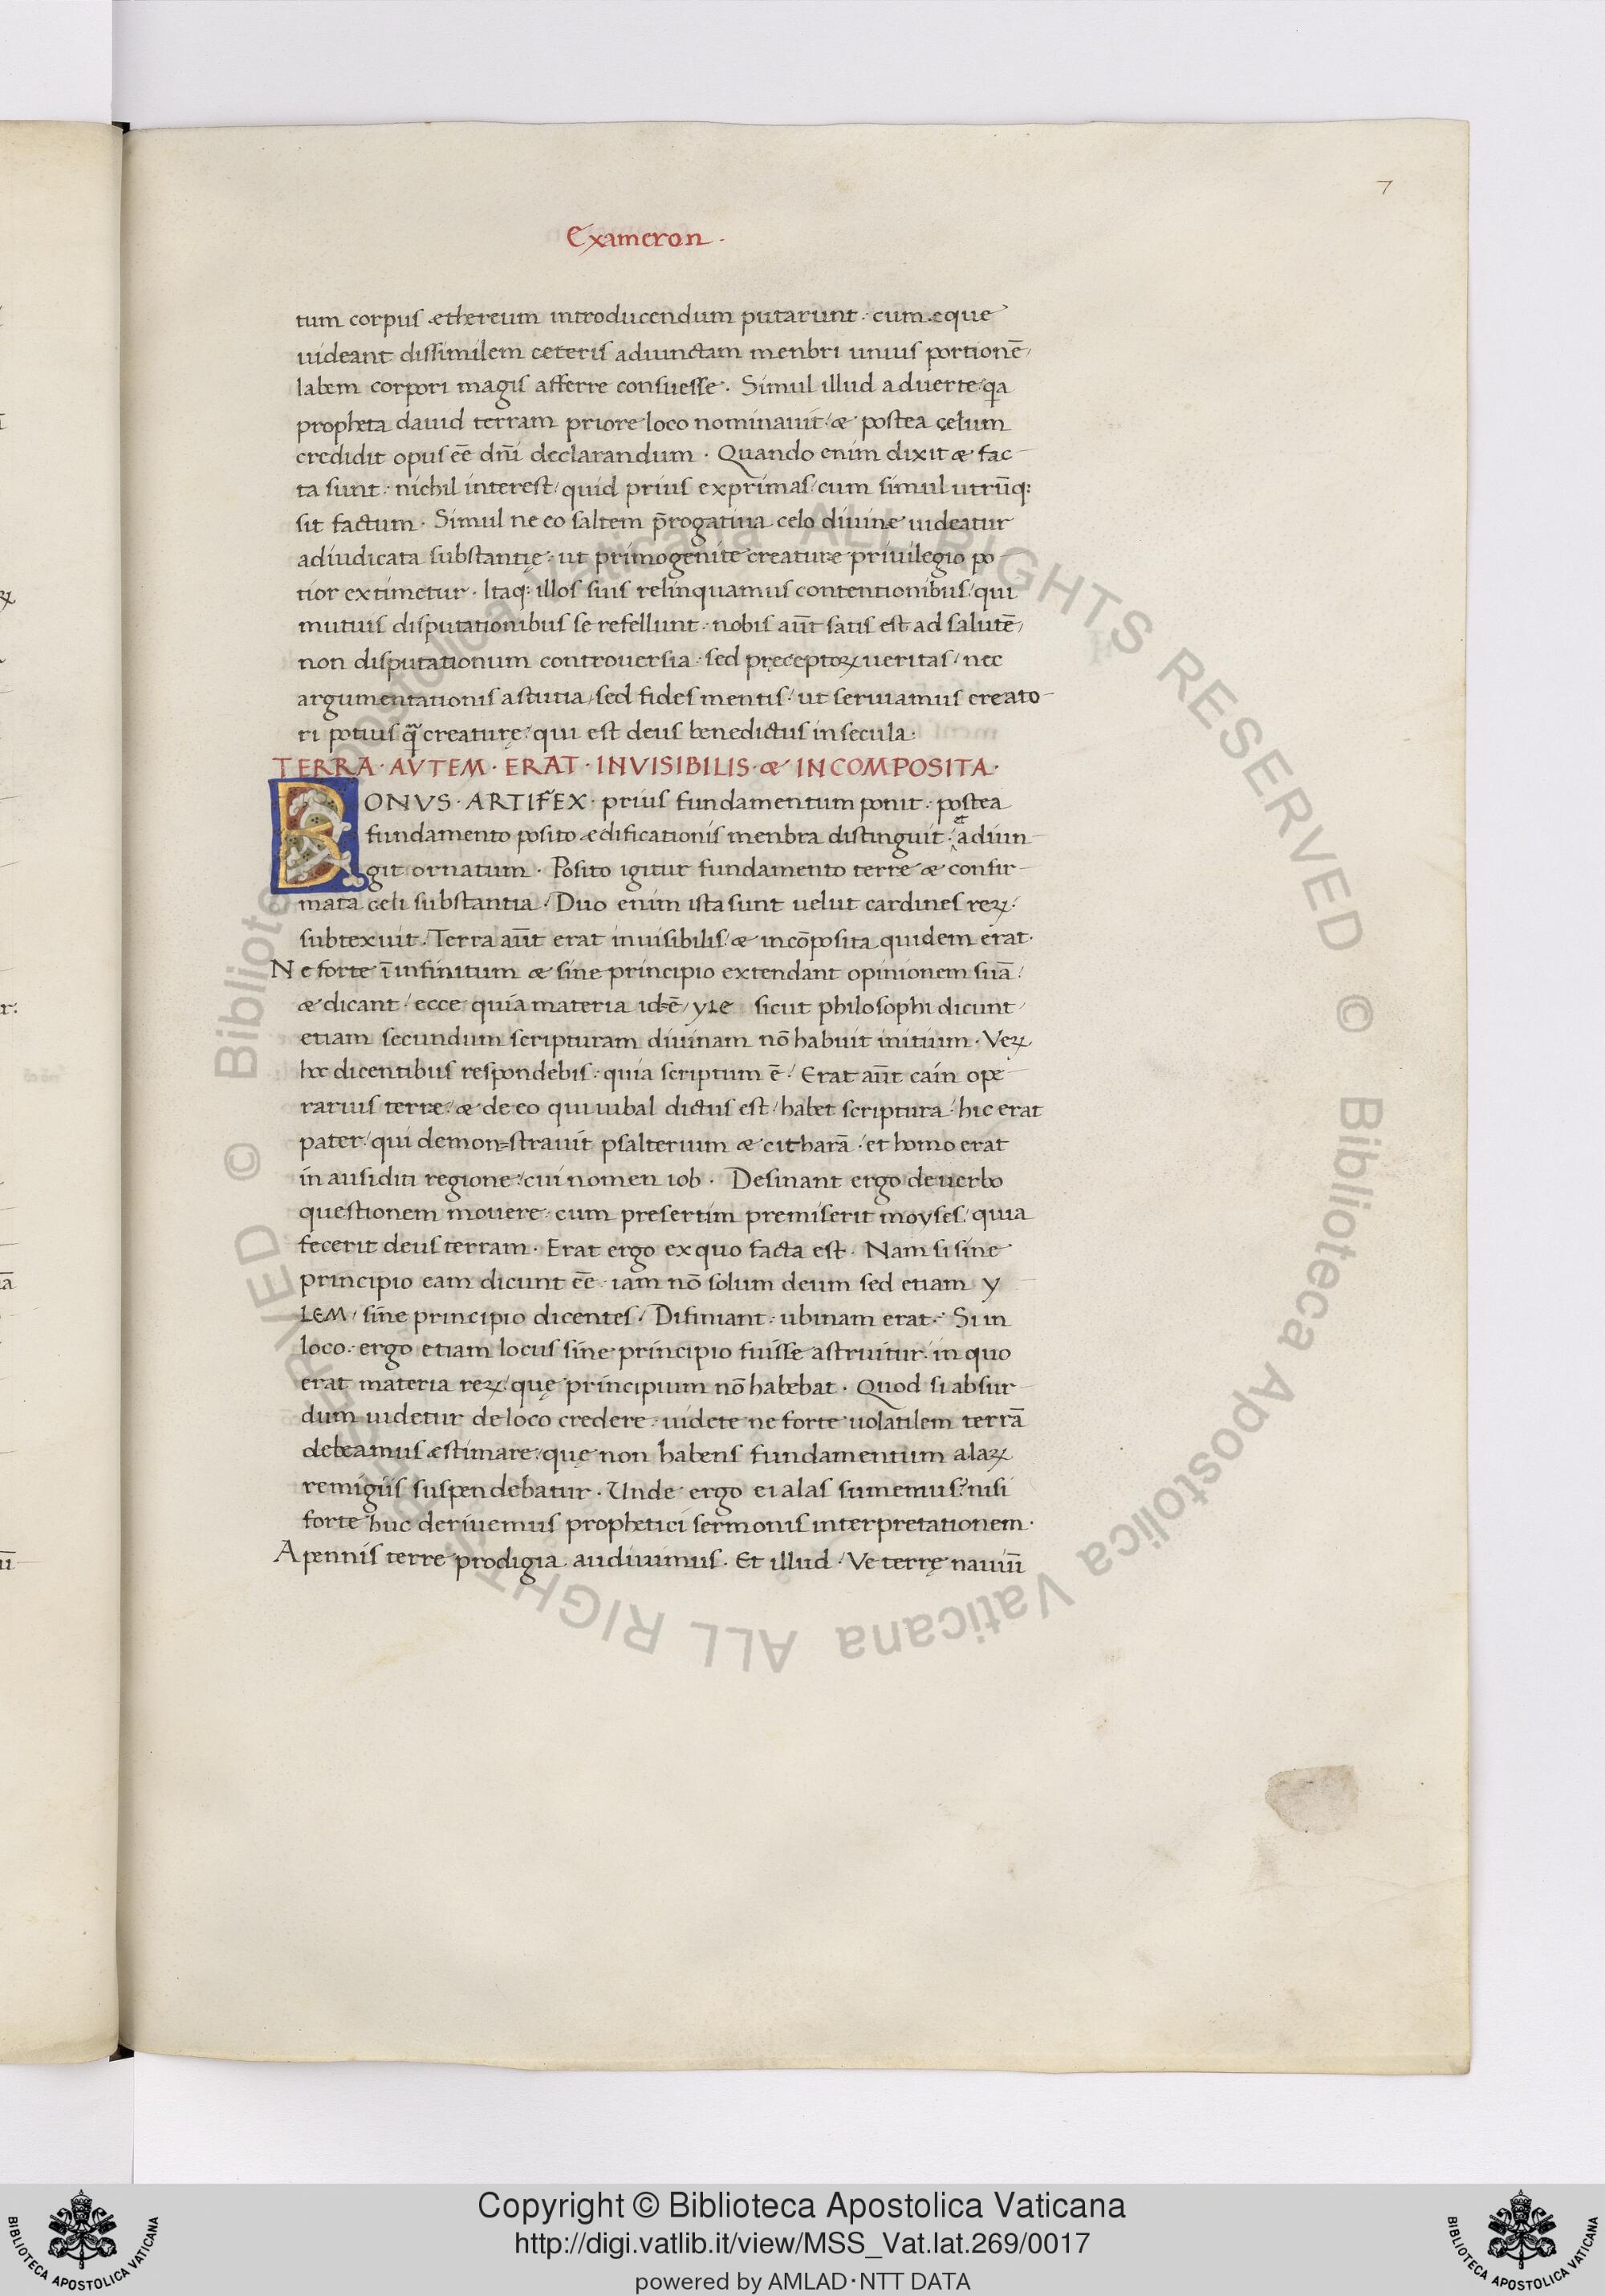 7
Exameron .
tum corpus æthereum introducendum putarunt : cum æque
uideant dissimilem ceteris adiunctam menbri unius portionē /
labem corpori magis afferre consuesse . Simul illud aduerte / qa
propheta dauid terram priore loco nominauit : & postea çelum
credidit opus eē dn̄i declarandum . Quando enim dixit & fac
ta sunt : nichil interest / quid prius exprimas / cum simul utrūq:
sit factum . Simul ne eo saltem p̄rogatiua celo diuinę uideatur
adiudicata substantię : ut primogenite creaturæ priuilegio po
tior extimetur . Itaq: illos suis relinquamus contentionibus / qui
mutuis disputationibus se refellunt : nobis aūt satis est ad salutē /
non disputationum controuersia : sed pręceptoꝝ ueritas / nec
argumentationis astutia / sed fides mentis : ut seruiamus creato
ri potius q̃ creaturę : qui est deus benedictus in secula .
TERRA · AVTEM · ERAT · INVISIBILIS · & INCOMPOSITA ·
BONVS · ARTIFEX · prius fundamentum ponit : postea
fundamento posito ædificationis menbra distinguit : et adiun
git ornatum . Posito igitur fundamento terræ & confir
mata celi substantia / Duo enim ista sunt uelut cardines reꝝ :
subtexuit . Terra aūt erat inuisibilis / & incōposita quidem erat .
Ne forte ī infinitum & sine principio extendant opinionem suā /
& dicant / ecce quia materia id ē / yLe sicut philosophi dicunt /
etiam secundum scripturam diuinam nō habuit initium . Veꝝ
hoc dicentibus respondebis : quia scriptum ē / Erat aūt cain ope
rarius terræ / & de eo qui iubal dictus est / habet scriptura / hic erat
pater / qui demon=strauit psalterium & citharā . et homo erat
in ausiditi regione / cui nomen iob . Desinant ergo de uerbo
questionem mouere : cum presertim premiserit moyses / quia
fecerit deus terram . Erat ergo ex quo facta est . Nam si sine
principio eam dicunt eē : iam nō solum deum sed etiam y
LEM / sine principio dicentes / Difiniant : ubinam erat : Si in
loco : ergo etiam locus sine principio fuisse astruitur / in quo
erat materia reꝝ / quę principium nō habebat . Quod si absur
dum uidetur de loco credere : uidete ne forte uolatilem terrā
debeamus æstimare / quę non habens fundamentum alaꝝ
remigiis suspendebatur . Unde ergo ei alas sumemus ? nisi
forte huc deriuemus prophetici sermonis interpretationem .
A pennis terre prodigia audiuimus . Et illud . Ve terrę nauiū
© Biblioteca Apostolica Vaticana ALL RIGHTS RESERVED © Biblioteca Apostolica Vaticana ALL RIGHTS RESERVED
Copyright © Biblioteca Apostolica Vaticana
http://digi.vatlib.it/view/MSS_Vat.lat.269/0017
powered by AMLAD·NTT DATA
BIBLIOTECA APOSTOLICA VATICANA
BIBLIOTECA APOSTOLICA VATICANA